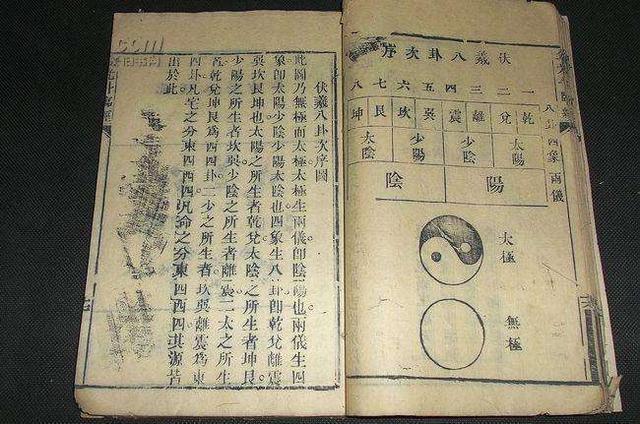 伏羲八卦次序
一二三四五六七八
乾兌離震巽坎艮坤
太陽 少陰 少陽 太陰
陽 陰
太極
無極
八卦 四象 兩儀
伏羲八卦次序圖
此圖乃無極而太極太極生兩儀即陰陽也兩儀生四
象即太陽少陰少陽太陰也四象生八卦即乾兌離震
巽坎艮坤也太陽之所生者乾兌太陰之所生者坤艮
少陽之所生者坎巽少陰之所生者離震二太之所生
者乾兌艮坤爲西四卦二少之所生者坎巽離震爲東
四卦凡宅之分東四西四凡命之分東四西四其源皆
出於此
.com